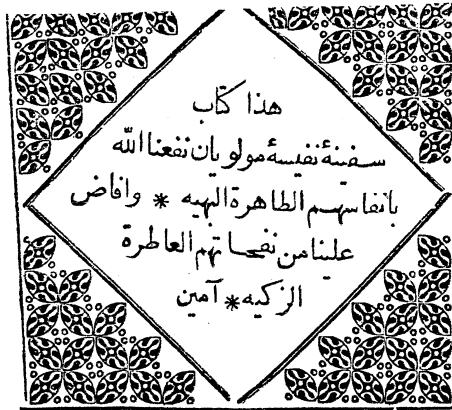 هذا كتاب
سفينهٔ نفيسهٔ مولويان نفعنا الله
بانفاسهم الطاهرة الهيه * وافاض
علينا من نفحاتهم العاطرة
الزكيه * آمين